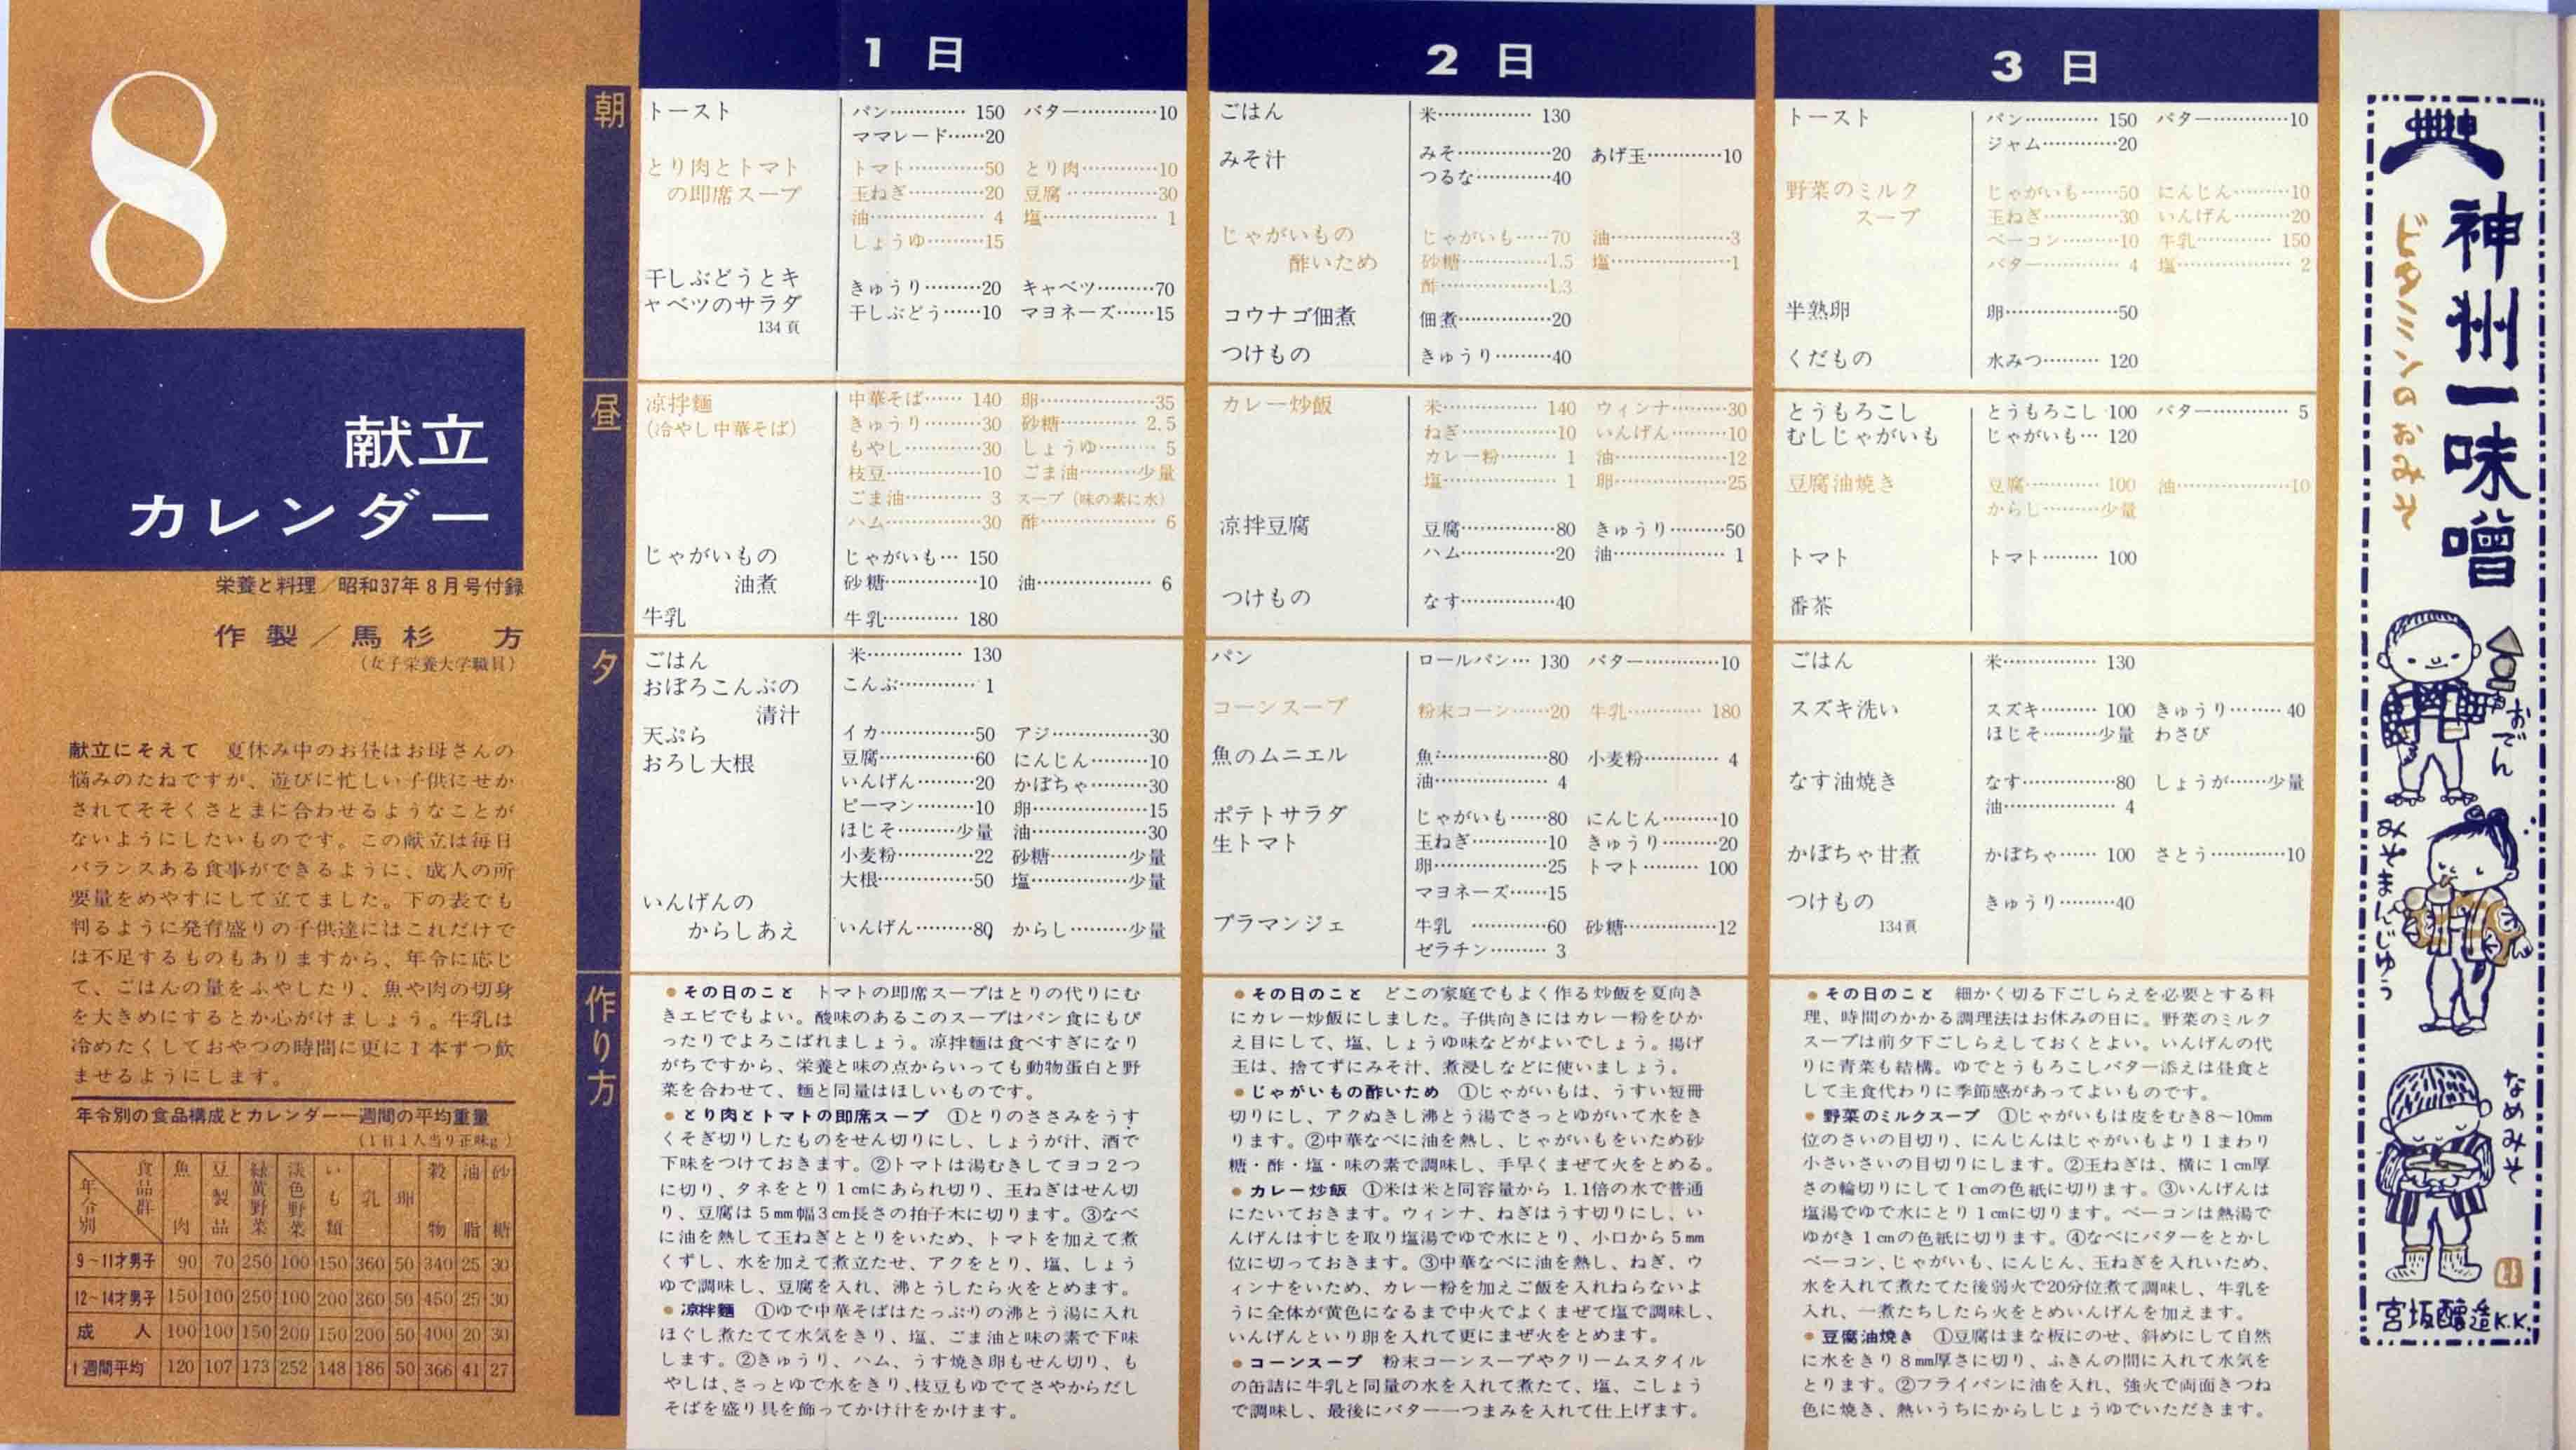 8
献立
カレンダー
栄養と料理／昭和37年8月号付録
作製／馬杉 方
（女子栄養大学職員）
献立にそえて 夏休み中のお昼はお母さんの
悩みのたねですが、遊びに忙しい子供にせか
されてそそくさとまに合わせるようなことが
ないようにしたいものです。この献立は毎日
バランスある食事ができるように、成人の所
要量をめやすにして立てました。下の表でも
判るように発育盛りの子供達にはこれだけで
は不足するものもありますから、年令に応じ
て、ごはんの量をふやしたり、魚や肉の切身
を大きめにするとか心がけましょう。牛乳は
冷めたくしておやつの時間に更に1本ずつ飲
ませるようにします。
年令別の食品構成とカレンダー一週間の平均重量
（1日1人当り正味g）
年令別 食品群 魚肉 豆製品 緑黄野菜 淡色野菜 いも類 乳 卵 穀物 油脂 砂糖
9～11才男子 90 70 250 100 150 360 50 340 25 30
12～14才男子 150 100 250 100 200 360 50 450 25 30
成人 100 100 150 200 150 200 50 400 20 30
1週間平均 120 107 173 252 148 186 50 366 41 27
朝
昼
夕
作り方
1日
トースト パン………… 150 バター…………10
ママレード……20
とり肉とトマト トマト…………50 とり肉…………10
の即席スープ 玉ねぎ…………20 豆腐…………30
油……………… 4 塩……………… 1
しょうゆ………15
干しぶどうとキ きゅうり………20 キャベツ………70
ャベツのサラダ 干しぶどう……10 マヨネーズ……15
134頁
凉拌麵 中華そば…… 140 卵………………35
（冷やし中華そば） きゅうり………30 砂糖………… 2.5
もやし…………30 しょうゆ……… 5
枝豆……………10 ごま油……少量
ごま油………… 3 スープ（味の素に水）
ハム……………30 酢……………… 6
じゃがいもの じゃがいも… 150
油煮 砂糖……………10 油……………… 6
牛乳 牛乳………… 180
ごはん 米…………… 130
おぼろこんぶの こんぶ………… 1
清汁
天ぷら イカ……………50 アジ……………30
おろし大根 豆腐……………60 にんじん………10
いんげん………20 かぼちゃ………30
ピーマン………10 卵………………15
ほじそ………少量 油………………30
小麦粉…………22 砂糖…………少量
大根……………50 塩……………少量
いんげんの
からしあえ いんげん………80 からし………少量
●その日のこと トマトの即席スープはとりの代りにむ
きエビでもよい。酸味のあるこのスープはパン食にもぴ
ったりでよろこばれましょう。凉拌麵は食べすぎになり
がちですから、栄養と味の点からいっても動物蛋白と野
菜を合わせて、麵と同量はほしいものです。
●とり肉とトマトの即席スープ ①とりのささみをうす
くそぎ切りしたものをせん切りにし、しょうが汁、酒で
下味をつけておきます。②トマトは湯むきしてヨコ2つ
に切り、タネをとり1cmにあられ切り、玉ねぎはせん切
り、豆腐は5mm幅3cm長さの拍子木に切ります。③なべ
に油を熱して玉ねぎととりをいため、トマトを加えて煮
くずし、水を加えて煮立たせ、アクをとり、塩、しょう
ゆで調味し、豆腐を入れ、沸とうしたら火をとめます。
●凉拌麵 ①ゆで中華そばはたっぷりの沸とう湯に入れ
ほぐし煮たてて水気をきり、塩、ごま油と味の素で下味
します。②きゅうり、ハム、うす焼き卵もせん切り、も
やしは、さっとゆで水をきり、枝豆もゆでてさやからだし
そばを盛り具を飾ってかけ汁をかけます。
2日
ごはん 米…………… 130
みそ汁 みそ……………20 あげ玉…………10
つるな…………40
じゃがいもの じゃがいも……70 油………………3
酢いため 砂糖…………1.5 塩………………1
酢……………1.3
コウナゴ佃煮 佃煮……………20
つけもの きゅうり………40
カレー炒飯 米…………… 140 ウィンナ………30
ねぎ……………10 いんげん………10
カレー粉……… 1 油………………12
塩……………… 1 卵………………25
凉拌豆腐 豆腐……………80 きゅうり………50
ハム……………20 油……………… 1
つけもの なす……………40
パン ロールパン… 130 バター…………10
コーンスープ 粉末コーン……20 牛乳………… 180
魚のムニエル 魚………………80 小麦粉………… 4
油……………… 4
ポテトサラダ じゃがいも……80 にんじん………10
生トマト 玉ねぎ…………10 きゅうり………20
卵………………25 トマト……… 100
マヨネーズ……15
ブラマンジェ 牛乳…………60 砂糖……………12
ゼラチン……… 3
●その日のこと どこの家庭でもよく作る炒飯を夏向き
にカレー炒飯にしました。子供向きにはカレー粉をひか
え目にして、塩、しょうゆ味などがよいでしょう。揚げ
玉は、捨てずにみそ汁、煮浸しなどに使いましょう。
●じゃがいもの酢いため ①じゃがいもは、うすい短冊
切りにし、アクぬきし沸とう湯でさっとゆがいて水をき
ります。②中華なべに油を熱し、じゃがいもをいため砂
糖・酢・塩・味の素で調味し、手早くまぜて火をとめる。
●カレー炒飯 ①米は米と同容量から 1.1倍の水で普通
にたいておきます。ウィンナ、ねぎはうす切りにし、い
んげんはすじを取り塩湯でゆで水にとり、小口から5mm
位に切っておきます。③中華なべに油を熱し、ねぎ、ウ
ィンナをいため、カレー粉を加えご飯を入れねらないよ
うに全体が黄色になるまで中火でよくまぜて塩で調味し、
いんげんといり卵を入れて更にまぜ火をとめます。
●コーンスープ 粉末コーンスープやクリームスタイル
の缶詰に牛乳と同量の水を入れて煮たて、塩、こしょう
で調味し、最後にバター一つまみを入れて仕上げます。
3日
トースト パン………… 150 バター…………10
ジャム…………20
野菜のミルク じゃがいも……50 にんじん………10
スープ 玉ねぎ…………30 いんげん………20
ベーコン………10 牛乳………… 150
バター………… 4 塩……………… 2
半熟卵 卵………………50
くだもの 水みつ……… 120
とうもろこし とうもろこし 100 バター………… 5
むしじゃがいも じゃがいも… 120
豆腐油焼き 豆腐………… 100 油………………10
からし………少量
トマト トマト……… 100
番茶
ごはん 米…………… 130
スズキ洗い スズキ……… 100 きゅうり……… 40
ほじそ………少量 わさび
なす油焼き なす……………80 しょうが……少量
油……………… 4
かぼちゃ甘煮 かぼちゃ…… 100 さとう…………10
つけもの きゅうり………40
134頁
●その日のこと 細かく切る下ごしらえを必要とする料
理、時間のかかる調理法はお休みの日に。野菜のミルク
スープは前夕下ごしらえしておくとよい。いんげんの代
りに青菜も結構。ゆでとうもろこしバター添えは昼食と
して主食代わりに季節感があってよいものです。
●野菜のミルクスープ ①じゃがいもは皮をむき8～10mm
位のさいの目切り、にんじんはじゃがいもより1まわり
小さいさいの目切りにします。②玉ねぎは、横に1cm厚
さの輪切りにして1cmの色紙に切ります。③いんげんは
塩湯でゆで水にとり1cmに切ります。ベーコンは熱湯で
ゆがき1cmの色紙に切ります。④なべにバターをとかし
ベーコン、じゃがいも、にんじん、玉ねぎを入れいため、
水を入れて煮たてた後弱火で20分位煮て調味し、牛乳を
入れ、一煮たちしたら火をとめいんげんを加えます。
●豆腐油焼き ①豆腐はまな板にのせ、斜めにして自然
に水をきり8mm厚さに切り、ふきんの間に入れて水気を
とります。②フライパンに油を入れ、強火で両面きつね
色に焼き、熱いうちにからしじょうゆでいただきます。
神州一味噌
ビタミンのおみそ
おでん
みそまんじゅう
なめみそ
宮坂醸造K.K.